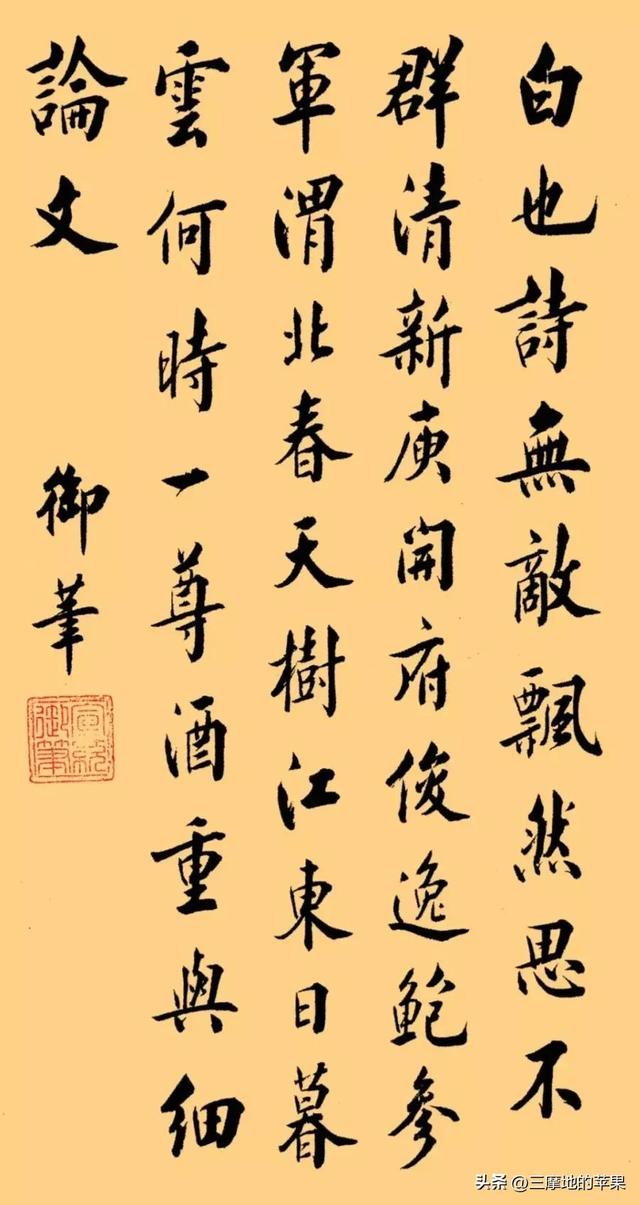 白也詩無敵飄然思不
群清新庾開府俊逸鮑參
軍渭北春天樹江東日暮
雲何時一尊酒重與細
論文
御筆
宣統御筆
头条 @三摩地的苹果